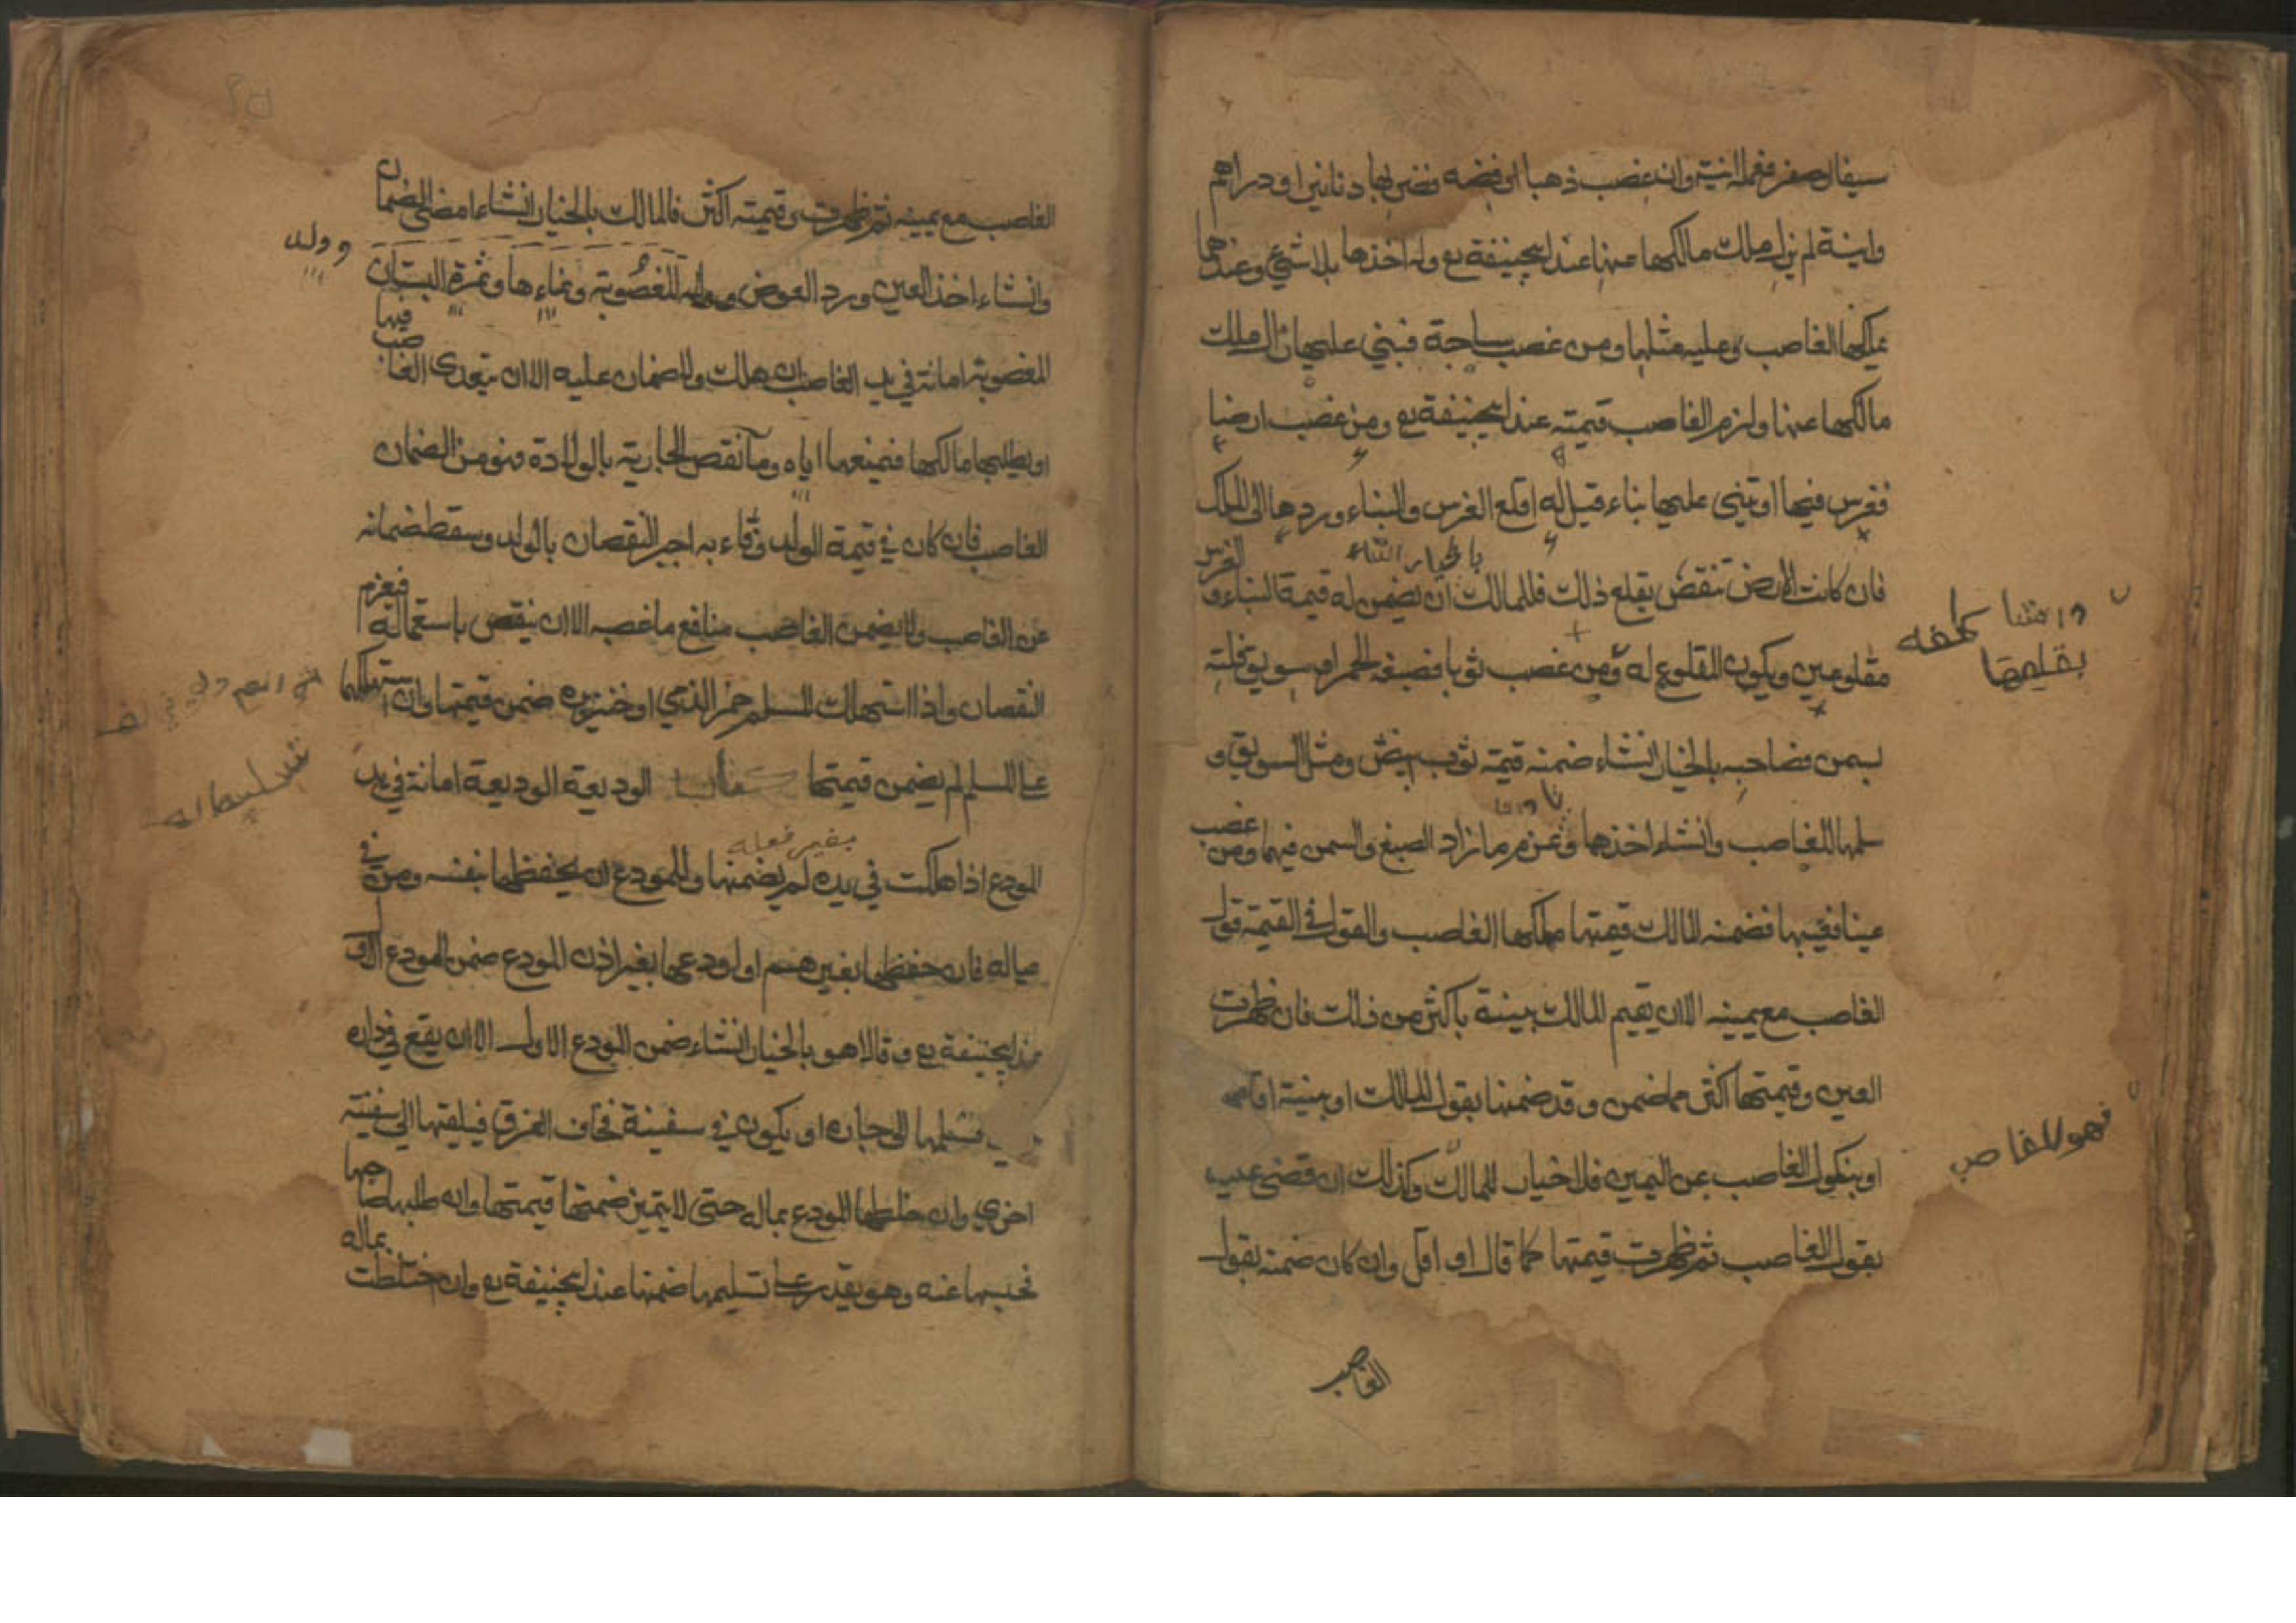 سيفا او صفر فعمله انية وان غصب ذهبا او فضه فضربها دنانير او دراهم
وانية لم يزل ملك مالكها عنها عند ابيحنيفة رع وله اخذها بلا شئ وعندهما
يملكها الغاصب وعليه مثلها ومن غصب ساجة فبني عليها زال ملك
مالكها عنها ولزم الغاصب قيمته عند ابيحنيفة رع ومن غصب ارضا
فغرس فيها او بني عليها بناء قيل له اقلع الغرس والبناء وردها الى المالك
بالخيار
فان كانت الارض تنقص بقلع ذلك فللمالك ان يضمن له قيمة البناء و الغرس
وان شا كلفه
بقلعها
مقلوعين ويكون المقلوع له ومن غصب ثوبا فصبغه احمر او سويق فلته
بسمن فصاحبه بالخيار انشاء ضمنه قيمة ثوب ابيض ومثل السويق و
سلمها للغاصب وانشاء اخذها وغرم ما زاد الصبغ والسمن فيهما ومن غصب
عينا فغيبها فضمنه المالك قيمتها ملكها الغاصب والقول في القيمة قول
الغاصب مع يمينه الا ان يقيم المالك بينة باكثر من ذلك فان ظهرت
العين وقيمتها اكثر مما ضمن وقد ضمنها بقول المالك او ببينة اقامها
او بنكول الغاصب عن اليمين فلا خيار للمالك وكذلك ان قضى عليه
فهو للغاصب
بقول الغاصب ثم ظهرت قيمتها كما قال او اقل وان كان ضمنه بقول
الغاصب
الغاصب مع يمينه ثم ظهرت وقيمته اكثر فالمالك بالخيار انشاء امضى الضمان
وانشاء اخذ العين ورد العوض وولد المغصوبة ونماءها وثمرة البستان
وولد
المغصوبة امانة في يد الغاصب ان هلك ولا ضمان عليه الا ان يتعدى فيها الغاصب
او يطلبها مالكها فيمنعها اياه وما نقص الجارية بالولادة فهو من الضمان
الغاصب فان كان في قيمة الولد وفاء به اجبر النقصان بالولد وسقط ضمانه
عن الغاصب ولا يضمن الغاصب منافع ما غصبه الا ان ينقص باستعماله فيغرم
النقصان واذا استهلك المسلم خمر الذمي او خنزيره ضمن قيمتها وان استهلكها
على المسلم لم يضمن قيمتها كتاب الوديعة الوديعة امانة في يد
بغير فعله
المودع اذا هلكت في يده لم يضمنها وللمودع ان يحفظها بنفسه ومن في
عياله فان حفظها بغيرهم او اودعها بغير اذن المودع ضمن المودع الاول
عند ابيحنيفة رع وقالا هو بالخيار انشاء ضمن المودع الاول الا ان يقع في داره
فسلمها الى جاره او يكون في سفينة فخاف الغرق فيلقيها الى سفينة
اخري وان خلطها المودع بماله حتى لا يتميز ضمنها قيمتها وان طلبها صاحبها
فحبسها عنه وهو يقدر على تسليمها ضمنها عند ابيحنيفة رع وان اختلطت بماله